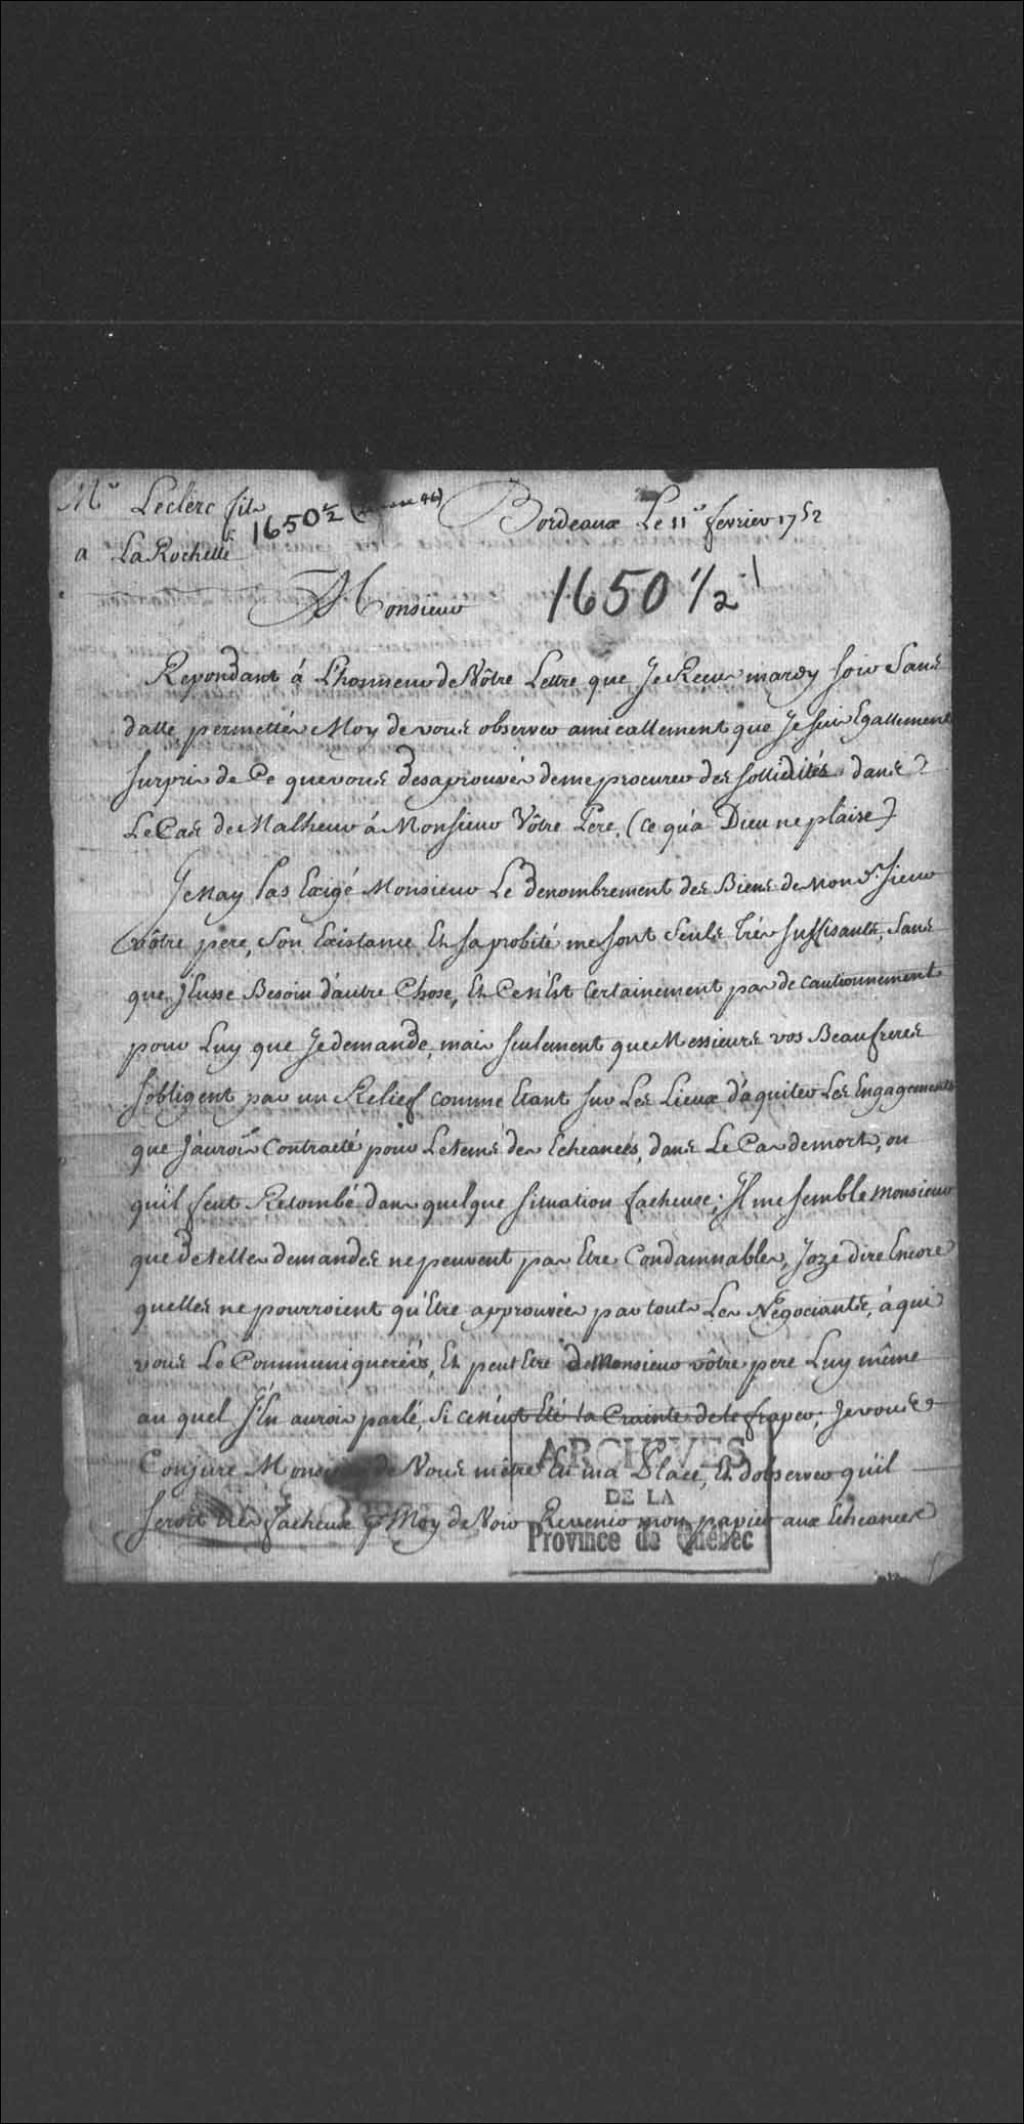 Mr Leclerc fils
1650 1/2
Bordeaux Le 11e fevrier 1752
a La Rochelle
Monsieur
1650 1/2
Repondant á L'honneur de Vôtre Lettre que Je Recus mardy soir Sans
datte, permettés Moy de vous observer amicallement que Je suis Egallement
surpris de Ce que vous desaprouvés de me procurer des sollidités dans
Le Cas de Malheur á Monsieur Vôtre Pere, (ce qu'a Dieu ne plaise)
Je Nay Pas Exigé Monsieur Le denombrement des Biens de Mond. Sieur
vôtre pere, Son Existance Et sa probité me sont Seuls Trés suffisants, Sans
que J'Eusse Besoin d'autre Chose, Et Ce n'Est Certainement pas de Cautionnement
pour Luy que Je demande, mais seulement que Messieurs vos Beaufreres
s'obligent par un Relief comme Etant sur Les Lieux d'aquiter Les Engagements
que J'aurois Contracté pour Le tems des Echeances, dans Le Cas de mort, ou
quil feut Retombé dans quelque situation facheuse; Il me semble Monsieur
que de telles demandes ne peuvent pas Etre Condamnables, J'oze dire Encore
quelles ne pourroient qu'Etre approuvées par touts Les Négociants, á qui
vous Le Communiqueriés, Et peut Etre de Monsieur vôtre pere Luy même
au quel J'En aurois parlé, Si ce n'eut Eté la Crainte de le fraper; Je vous
Conjure de Vous mètre En ma Place, Et d'observer quil
seroit très facheux pr Moy de Voir Revenir mon papier aux Echeances
ARCHIVES
DE LA
Province de Québec